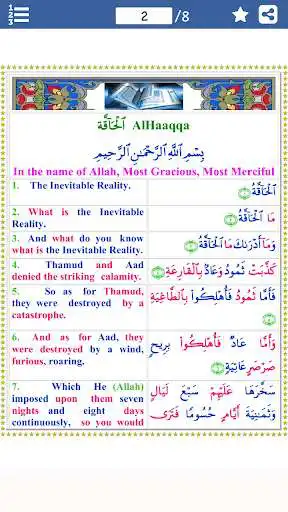 1
2
3
2 /8
اَلْحَاقَّةُ AlHaaqqa
بِسْمِ اللَّهِ الرَّحْمَٰنِ الرَّحِيمِ
In the name of Allah, Most Gracious, Most Merciful
1. The Inevitable Reality.
ٱلْحَاقَّةُ ١
2. What is the Inevitable
Reality.
مَا ٱلْحَاقَّةُ ٢
3. And what do you know
what is the Inevitable Reality.
وَمَآ أَدْرَىٰكَ مَا ٱلْحَاقَّةُ ٣
4. Thamud and Aad
denied the striking calamity.
كَذَّبَتْ ثَمُودُ وَعَادٌۢ بِٱلْقَارِعَةِ ٤
5. So as for Thamud,
they were destroyed by a
catastrophe.
فَأَمَّا ثَمُودُ فَأُهْلِكُوا۟ بِٱلطَّاغِيَةِ
٥
6. And as for Aad, they
were destroyed by a wind,
furious, roaring.
وَأَمَّا عَادٌ فَأُهْلِكُوا۟ بِرِيحٍ
صَرْصَرٍ عَاتِيَةٍ ٦
7. Which He (Allah)
imposed upon them seven
nights and eight days
continuously, so you would
سَخَّرَهَا عَلَيْهِمْ سَبْعَ لَيَالٍ
وَثَمَٰنِيَةَ أَيَّامٍ حُسُومًا فَتَرَى